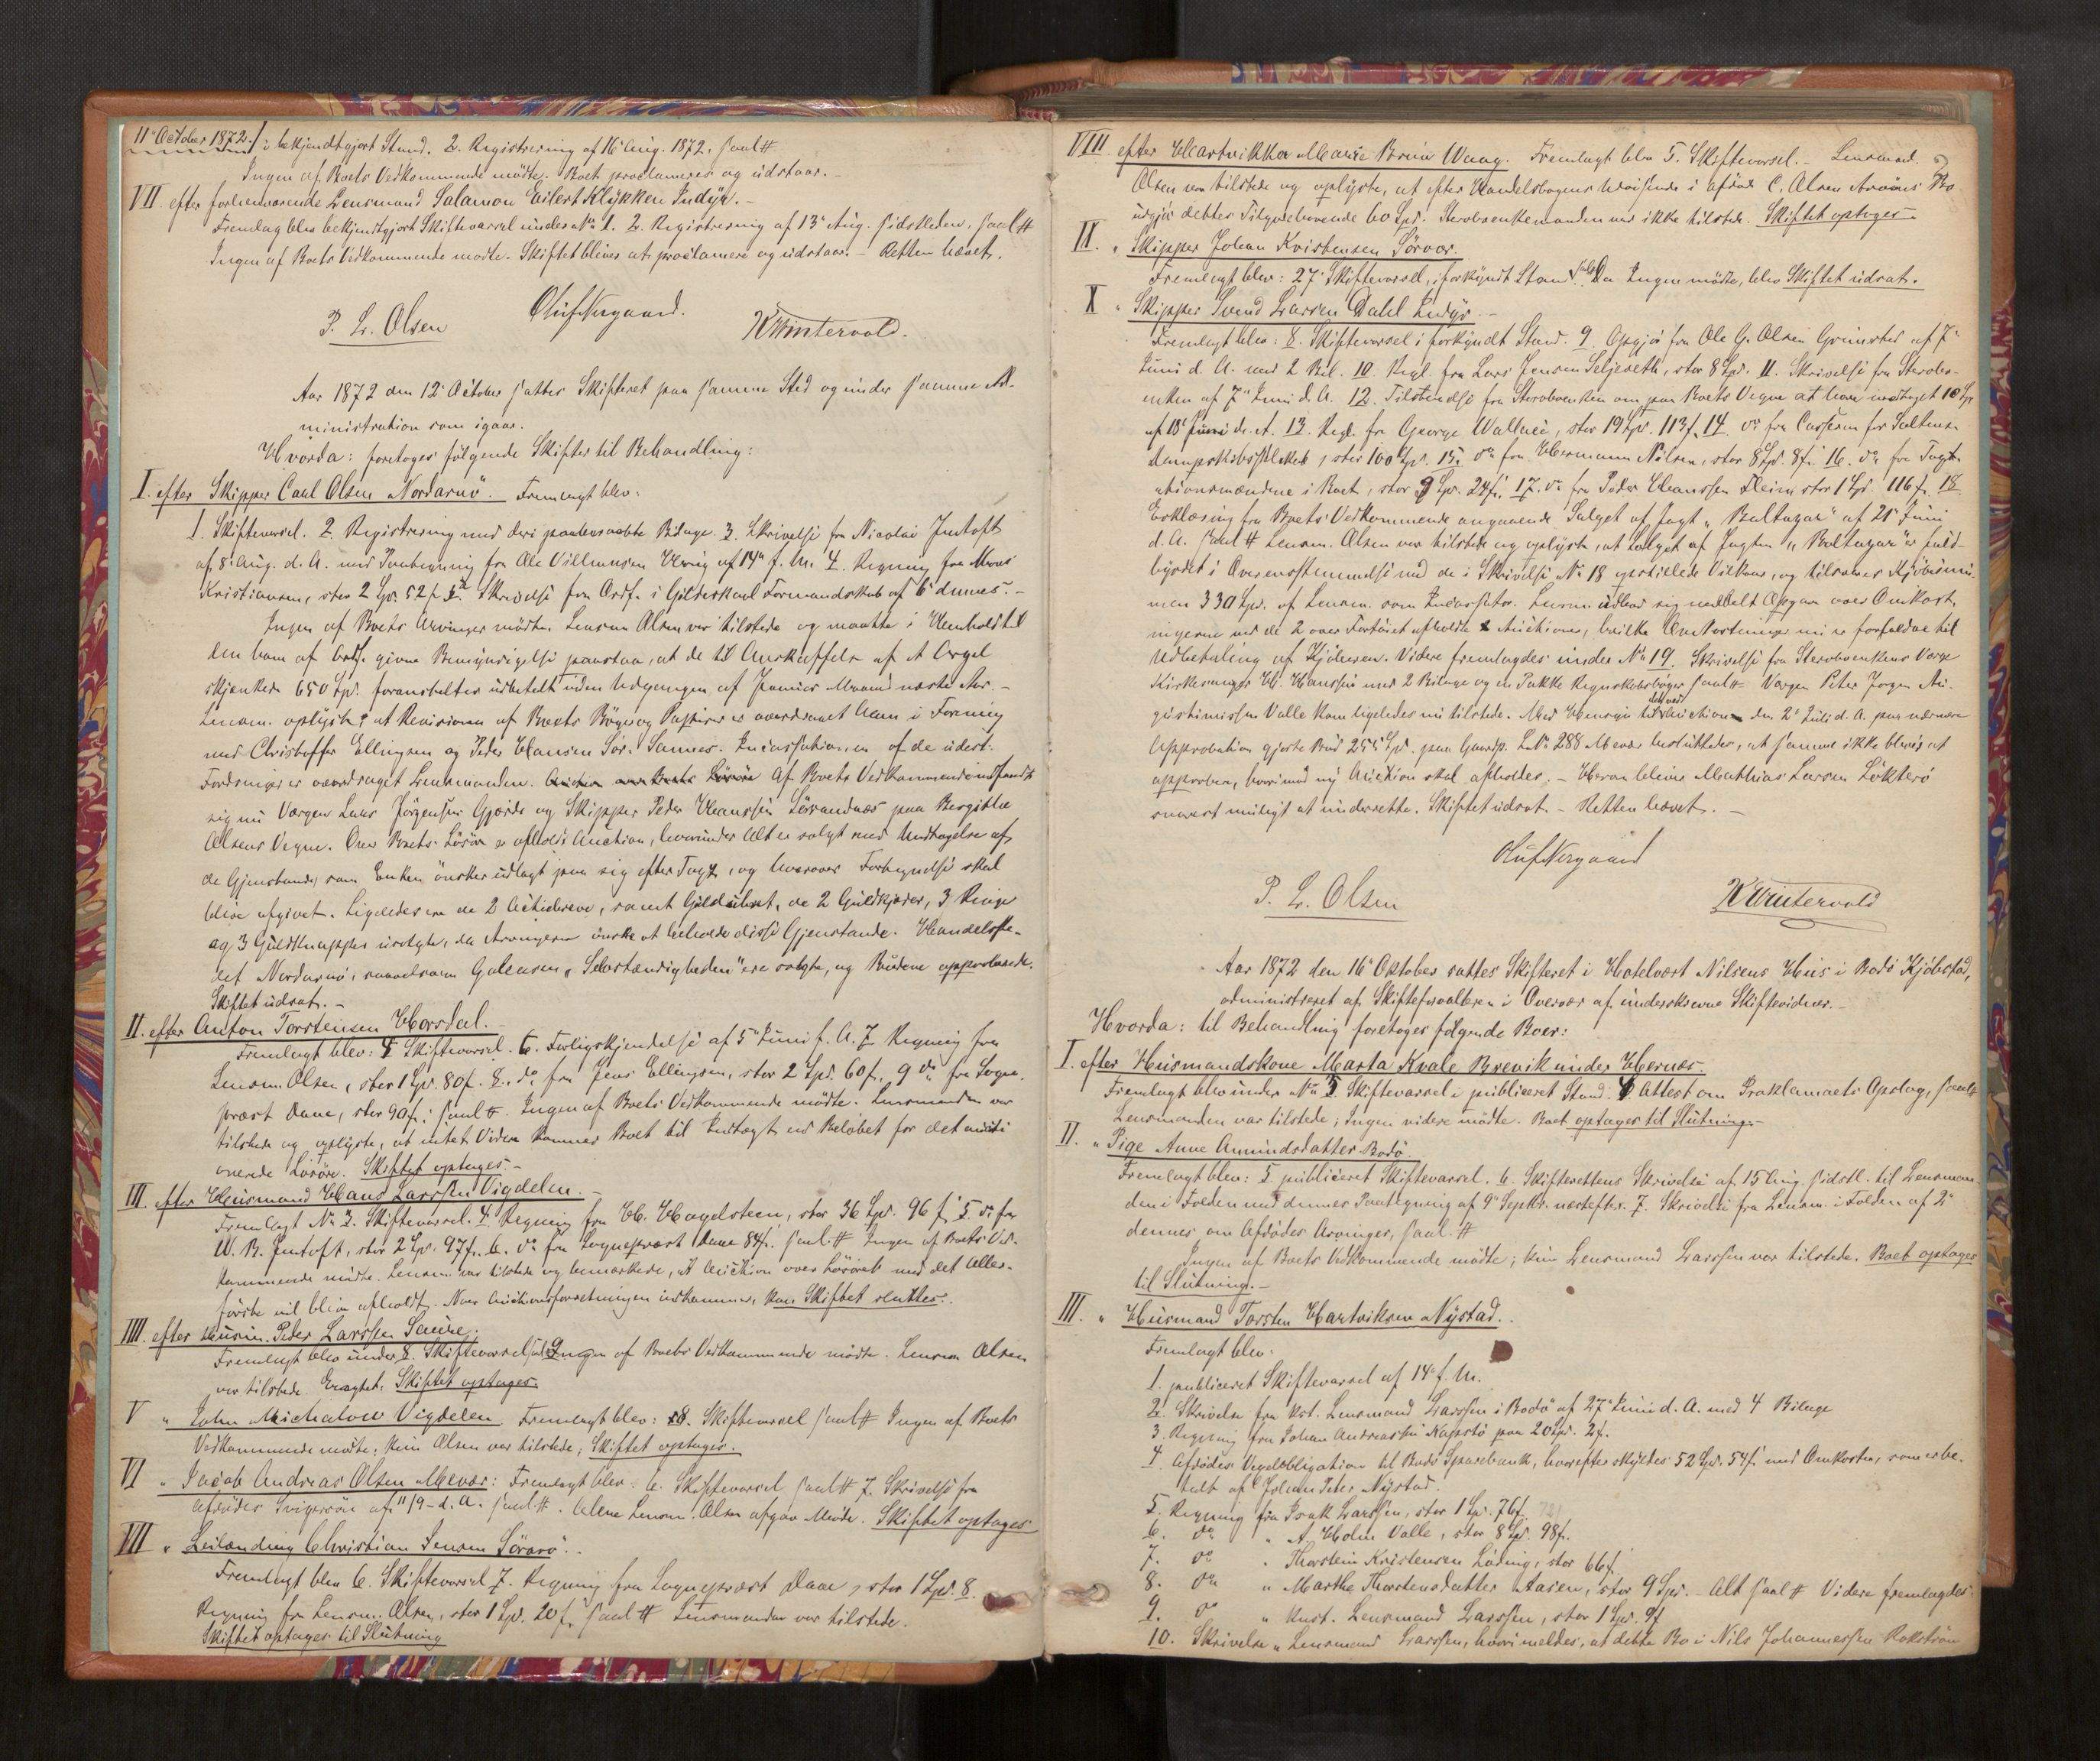 11te October 1872.
i bekjendtgjort Stand. 2. Registrering af 16 Aug. 1872,
Ingen af Boets Vedkommende mødte. Boet proclameres og udstaar.-
VII. efter forhenværende Lensmand Salamon Eilert Klykken Indyr.-
Fremlagt blev bekjendtgjort Skiftevarsel under No 1. 2. Registrering af 13de Aug. sidstleden,
Ingen af Boets Vedkommende mødte. Skiftet bliver at proclamere og udstaar.- Retten hævet.
P. L. Olsen Oluf Nergaard. K Wintervold.
Aar 1872 den 12te October sattes Skifteret paa samme Sted og under samme Ad-
ministration som igaar.
Hvorda: foretoges følgende Skifter til Behandling:
I. efter Skipper Carl Olsen Nordarnö. Fremlagt blev:
1. Skiftevarsel. 2. Registrering med deri paaberaabte Bilage. 3. Skrivelse fra Nicolai Jentoft
af 8 Aug. d. A. med Paategning fra Ole Villumsen af 14de f. M. 4. Regning fra
Kristiansen, stor 2 Spd. 52 f. 5. Skrivelse fra Ordf. i Gildeskaal Formandskab af 6te dennes.-
Ingen af Boets Arvinger mødte. Lensm Olsen var tilstede og maatte i Henhold til
den ham af Ordf. givne Bemyndigelse paastaa, at de til Anskaffelse af et Orgel
skjænkede 650 Spd. foranstaltes udbetalt inden Udgangen af Januar Maaned næste Aar.-
Lensm. oplyste at Revisionen af Boets Bøger og Papirer er overdraget ham i Forening
med Christoffer Ellingsen og Peder Hansen Sør. Sannes. Incassationen af de udest.
Fordringer er overdraget Lensmanden. Af Boets Vedkommende indfandt
sig nu Værgen Lars Jörgensen Gjærde og Skipper Peder Hanssen Sörsandnæs paa Bergithe
Olsens Vegne. Over Boets Lösöre er afholdt Auction, hvorunder Alt er solgt med Undtagelse af
de Gjenstande, som Enken ønsker udlagt paa sig efter Taxt, og hvorover Fortegnelse skal
blive afgivet. Ligeledes ere de 2 Actiebreve, samt Gulduhret, de 2 Guldkjæder, 3 Ringe
og 3 Guldknapper usolgte, da Arvingerne ønske at beholde disse Gjenstande. Handelsste-
det Nordarnö, saavelsom Galeasen "Selvstændigheden" ere solgte, og Budene approberede.
Skiftet udsat.-
II. efter Anton Torstensen Horsdal.
Fremlagt blev: 5 Skiftevarsel. 6. Forligskjendelse af 5te Juni f. A. 7 Regning fra
Lensm. Olsen, stor 1 Spd. 80 f. 8. do fra Jens Ellingsen, stor 2 Spd. 60 f., 9 do fra Sogne-
præst Daae, stor 90 f. Ingen af Boets Vedkommende mødte. Lensmanden var
tilstede og oplyste, at intet Videre kommer Boet til Indtægt end Beløbet for det aucti
onerede Lösöre. Skiftet optages.-
III. efter Huusmand Hans Larssen Vigdelen.-
Fremlagt No 3. Skiftevarsel. 4 Regning fra Chr. Hagelsteen, stor 36 Spd. 96 f. 5. do fra
W. B. Jentoft, stor 2 Spd. 97 f. 6. do fra Sognepræst Daae 84 f. Ingen af Boets Ved-
kommende mødte. Lensm. var tilstede og bemærkede, at Auction over Lösöret med det Aller-
første vil blive afholdt. Naar Auctionsforretningen indkommer, kan Skiftet sluttes.
IIII. efter Huusm. Peder Larssen Saura.
Fremlagt blev under 8. Skiftevarsel. Ingen af Boets Vedkommende mødte. Lensm Olsen
var tilstede. Eragtet: Skiftet optages.
V " John Michalow Vigdelen. Fremlagt blev: 8. Skiftevarsel Ingen af Boets
Vedkommende mødte. Kun Olsen var tilstede; Skiftet optages.
VI " Jacob Andreas Olsen Mevær: Fremlagt blev: 6. Skiftevarsel, 7. Skrivelse fra
Afdødes Svigersön af 11/9 d. A. Alene Lensm. Olsen afgav Møde. Skiftet optages
VII " Leilænding Christian Jensen Sörarö.
Fremlagt blev 6. Skiftevarsel 7. Regning fra Sognepræst Daae, stor 1 Spd. 8.
Regning fra Lensm. Olsen, stor 1 Spd. 20 f. Lensmanden var tilstede.
Skiftet optages til Slutning
VIII. efter Hartvikka Marie Bruun Waag. Fremlagt blev 5. Skiftevarsel.- Lensmand.
Olsen var tilstede og oplyste, at efter Handelsbogens Udvisende i afdøde C. Olsen Arnöns Bo
udgjør dettes Tilgodehavende 60 Spd. Stervboenkemanden var ikke tilstede. Skiftet optages
IX. " Skipper Johan Kristensen Sörvær.
Fremlagt blev: 27 Skiftevarsel, i forkyndt Stand. Da Ingen mødte, blev Skiftet udsat.
X " Skipper Svend Larsen Dahl Indyr.-
Fremlagt blev: 8. Skiftevarsel i forkyndt Stand. 9. Opgjör fra Ole G. Olsen Grimstad af 7de
Juni d. A. med 2 Bil. 10. Regl. fra Lars Jensen Seljeseth, stor 8 Spd. 11. Skrivelse fra Stervbo-
enken af 7de Juni d. A. 12. Tilstaaelse fra Stervboenken om paa Boets Vegne at have modtaget 10 Spd
af 18de Juni d. A. 13. Regl. fra George Wallace, stor 19 Spd. 113 f. 14 do fra Casseren for Saltens
Dampskibsselskab, stor 100 Spd. 15. do fra Hermann Nilsen, stor 8 Spd. 8 f. 16. do fra Taxa
ationsmændene i Boet, stor 9 Spd. 24 f. 17. do fra Peder Hanssen stor 1 Spd. 116 f. 18
Erklæring fra Boets Vedkommende angaaende Salget af Jagt "Baltazar" af 21 Juni
d. A. Lensm. Olsen var tilstede og oplyste, at Salget af Jagten "Baltazar" er fuld-
byrdet i Overensstemmelse med de i Skrivelse No 18 opstillede Vilkaar, og tilsvares Kjøbesum-
men 330 Spd. af Lensm. som Incassator. Lensm. udbad sig meddelt Opgave over Omkost-
ningerne ved de 2 over Fartøiet afholdte Auctioner, hvilke Omkostninger nu er forfaldne til
Udbetaling af Kjøberen. Videre fremlagdes under No 19. Skrivelse fra Stervboenkens Værge
Kirkesanger Chr. Hanssen med 2 Bilage og en Pakke Regnskabsbøger Værgen Peter Jørgen Au-
gustinussen Valle kom ligeledes nu tilstede. Med Hensyn til det ved Auction den 2de Juli d. A. paa nærmere
Approbation gjorte Bud 255 Spd. paa Gaardp. L.No 288 Mevær besluttedes, at samme ikke bliver at
approbere, hvorimod ny Auction skal afholdes.- Herom bliver Mathias Larsen Lökterö
snarest muligt at underrette. Skiftet udsat.- Retten hævet.-
Oluf Nergaard
P. L. Olsen K Wintervold
Aar 1872 den 16de Oktober sattes Skifteret i Hotelvært Nilsens Huus i Bodö Kjöbstad,
administreret af Skifteforvalteren i Overvær af underskrevne Skiftevidner.-
Hvorda: til Behandling foretoges følgende Boer:
I. efter Huusmandskone Marta Kvale Brevik under Hernes.
Fremlagt blev under No 3 Skiftevarsel i publiceret Stand. 4 Attest om Proklamaets Opslag,
Lensmanden var tilstede; Ingen videre mødte. Boet optages til Slutning.-
II. " Pige Anne Amundsdatter Bodö.
Fremlagt blev: 5 publiceret Skiftevarsel. 6. Skifterettens Skrivelse af 15 Aug. sidstl. til Lensman-
den i Folden med dennes Paategning af 9de Septbr. næstefter. 7. Skrivelse fra Lensm. i Folden af 2de
dennes om Afdødes Arvinger,
Ingen af Boets Vedkommende mødte; kun Lensmand Larssen var tilstede. Boet optages
til Slutning.-
III. " Huusmand Torsten Hartviksen Nystad.
Fremlagt blev:
1. publiceret Skiftevarsel af 14de f. M.
2. Skrivelse fra kst. Lensmand Larssen i Bodö af 27de Juni d. A. med 4 Bilage
3. Regning fra Johan Andreassen paa 20 Spd. 2 f.
4. Afdødes Vexelobligation til Bodö Sparebank, hvorefter skyldes 52 Spd. 54 f. med Omkostn, som er be-
talt af Johan Peter Nystad.
5. Regning fra Isak Larssen, stor 1 Spd. 76 f.
6. do " A. Holm Valle, stor 8 Spd. 98 f.
7. do " Thorstein Kristensen Löding, stor 66 f.
8. do " Marthe Thorstensdatter Aasen, stor 9 Spd.- Alt Videre fremlagdes
9. do " Kust. Lensmand Larssen, stor 1 Spd. 9 f
10. Skrivelse " Lensmand Larssen, hvori meldes, at dette Bo i Nils Johannessen